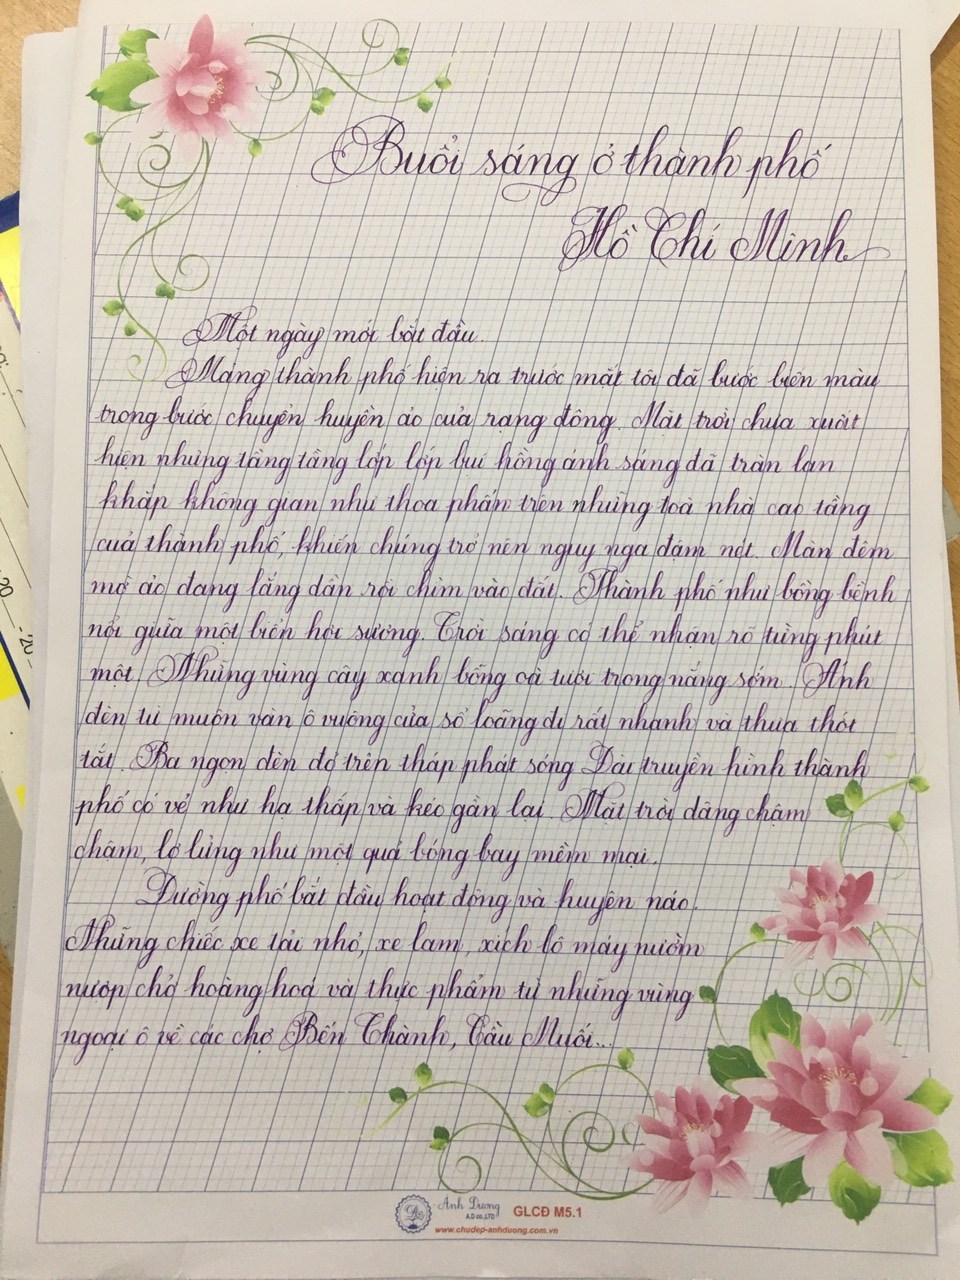 Buổi sáng ở thành phố
Hồ Chí Minh
Một ngày mới bắt đầu.
Mảng thành phố hiện ra trước mặt tôi đã bước biến màu
trong bước chuyển huyền ảo của rạng đông. Mặt trời chưa xuất
hiện nhưng tầng tầng lớp lớp bụi hồng ánh sáng đã tràn lan
khắp không gian như thoa phấn trên những toà nhà cao tầng
của thành phố, khiến chúng trở nên nguy nga đậm nét. Màn đêm
mờ ảo đang lắng dần rồi chìm vào đất. Thành phố như bồng bềnh
nổi giữa một biển hơi sương. Trời sáng có thể nhận rõ từng phút
một. Những vùng cây xanh bỗng oà tươi trong nắng sớm. Ánh
đèn từ muôn vàn ô vuông cửa sổ loãng đi rất nhanh và thưa thớt
tắt. Ba ngọn đèn đỏ trên tháp phát sóng Đài truyền hình thành
phố có vẻ như hạ thấp và kéo gần lại. Mặt trời dâng chậm
chậm, lơ lửng như một quả bóng bay mềm mại.
Đường phố bắt đầu hoạt động và huyên náo.
Những chiếc xe tải nhỏ, xe lam, xích lô máy nườm
nượp chở hoàng hoá và thực phẩm từ những vùng
ngoại ô về các chợ Bến Thành, Cầu Muối...
Ánh Dương
A.D co.,LTD
GLCĐ M5.1
www.chudep-anhduong.com.vn
20
20